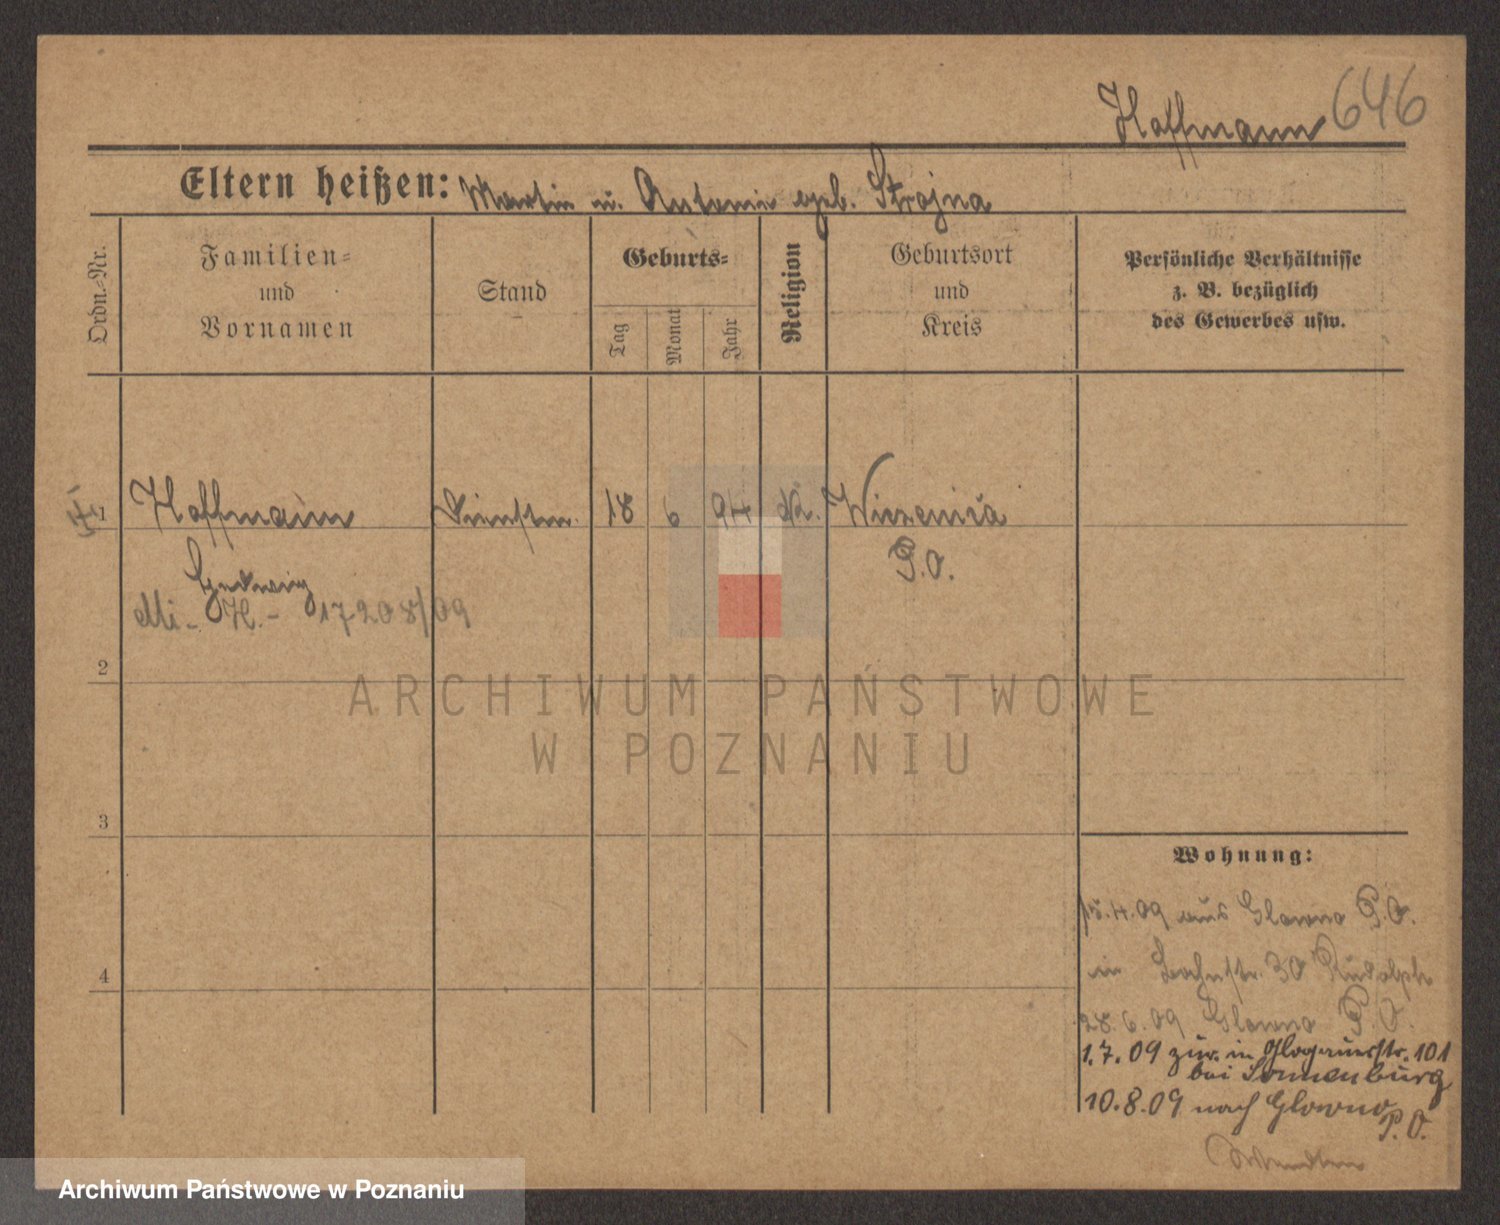 Hoffmann 646
Eltern heißen: Martin u. Antonie geb. Strojna
Ordn.-Nr.
Familien- und Vornamen
Stand
Geburts-
Tag
Monat
Jahr
Religion
Geburtsort und Kreis
Persönliche Verhältnisse
z. B. bezüglich
des Gewerbes usw.
1 Hoffmann Dienstm. 18 6 94 k. Wierzenica
P.O.
Hedwig
Mi.- H.- 17208/09
2
3
4
Wohnung:
15.4.09 aus Glowno P.O.
in Bahnstr. 30 Rudolph
28.6.09 Glowno P.O.
1.7.09 zur. in Glogauerstr. 101
bei Sonnenburg
10.8.09 nach Glowno
P.O.
ARCHIWUM PAŃSTWOWE
W POZNANIU
Archiwum Państwowe w Poznaniu